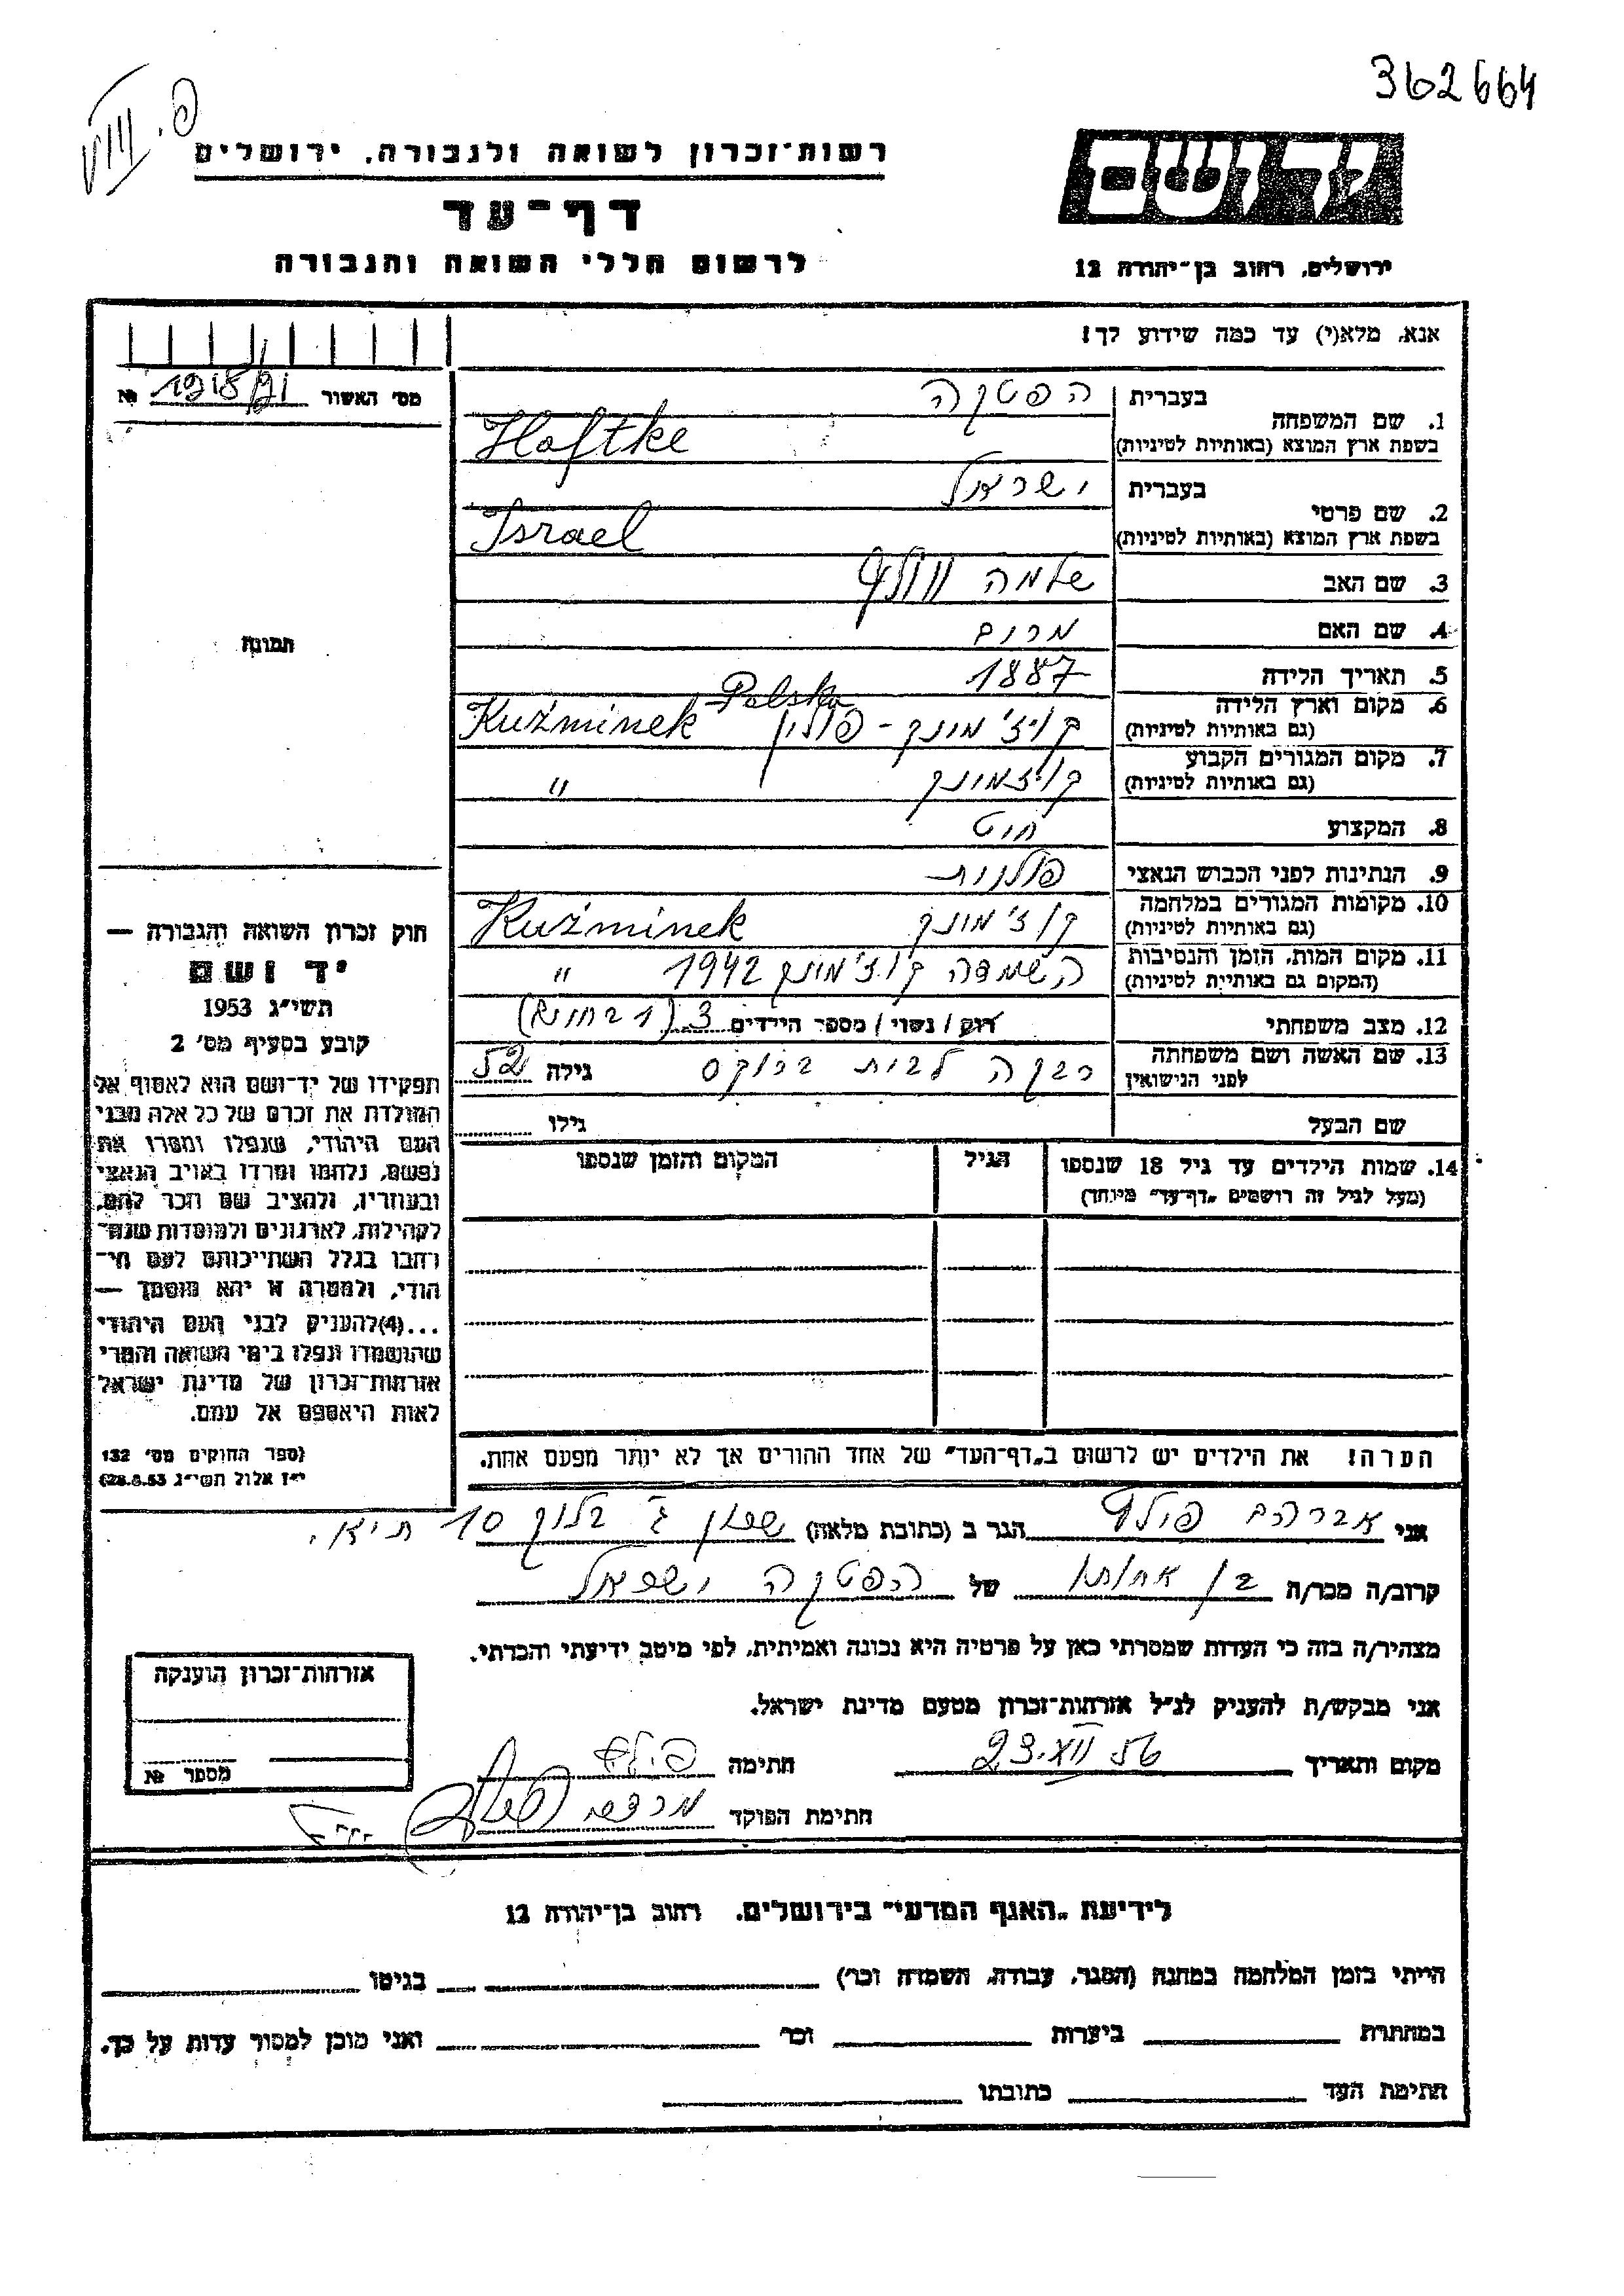 362664
פ. VIII
רשות־זכרון לשואה ולגבורה, ירושלים
יד ושם
דף־עד
לרשום חללי השואה והגבורה
ירושלים, רחוב בן־יהודה 12
אנא, מלא(י) עד כמה שידוע לך!
מס׳ האשור №
בעברית הפטקה
1. שם המשפחה
בשפת ארץ המוצא (באותיות לטיניות) Haftke
בעברית ישראל
2. שם פרטי
בשפת ארץ המוצא (באותיות לטיניות) Israel
3. שם האב שלמה וולף
4. שם האם מרים
5. תאריך הלידה 1887
6. מקום וארץ הלידה Polska
(גם באותיות לטיניות) קוז׳מינק - פולין Kuźminek
7. מקום המגורים הקבוע
(גם באותיות לטיניות) קוזמינק "
8. המקצוע חיט
9. הנתינות לפני הכבוש הנאצי פולנית
10. מקומות המגורים במלחמה
(גם באותיות לטיניות) קוז׳מינק Kuźminek
11. מקום המות, הזמן והנסיבות
(המקום גם באותיות לטיניות) השמדה קוז׳מינק 1942 "
12. מצב משפחתי רוק / נשוי / מספר הילדים 3
13. שם האשה ושם משפחתה
לפני הנישואין רבקה לבית ברוקס גילה 52
שם הבעל גילו
14. שמות הילדים עד גיל 18 שנספו הגיל המקום והזמן שנספו
(מעל לגיל זה רושמים „דף־עד״ מיוחד)
הערה! את הילדים יש לרשום ב„דף־העד״ של אחד ההורים אך לא יותר מפעם אחת.
תמונה
חוק זכרון השואה והגבורה —
יד ושם
תשי״ג 1953
קובע בסעיף מס׳ 2
תפקידו של יד־ושם הוא לאסוף אל
המולדת את זכרם של כל אלה מבני
העם היהודי, שנפלו ומסרו את
נפשם, נלחמו ומרדו באויב הנאצי
ובעוזריו, ולהציב שם וזכר להם,
לקהילות, לארגונים ולמוסדות שנח־
רבו בגלל השתייכותם לעם הי־
הודי, ולמטרה זו יהא מוסמך —
...(4) להעניק לבני העם היהודי
שהושמדו ונפלו בימי השואה והמרי
אזרחות־זכרון של מדינת ישראל
לאות היאספם אל עמם.
(ספר החוקים מס׳ 132
י״ז אלול תשי״ג 28.8.53)
אני אברהם פולף הגר ב (כתובת מלאה) שכון ג׳ בלוק 10 ת״א.
קרוב/ה מכר/ה בן אחותו של הפטקה ישראל
מצהיר/ה בזה כי העדות שמסרתי כאן על פרטיה היא נכונה ואמיתית, לפי מיטב ידיעתי והכרתי.
אני מבקש/ת להעניק לנ״ל אזרחות־זכרון מטעם מדינת ישראל.
מקום ותאריך 23.XII 56 חתימה פולף
חתימת הפוקד מרדכי
אזרחות־זכרון הוענקה
מספר №
לידיעת „האגף המדעי״ בירושלים. רחוב בן־יהודה 12
הייתי בזמן המלחמה במחנה (הסגר, עבודה, השמדה וכו׳) בגיטו
במחתרת ביערות וכו׳ ואני מוכן למסור עדות על כך.
חתימת העד כתובתו